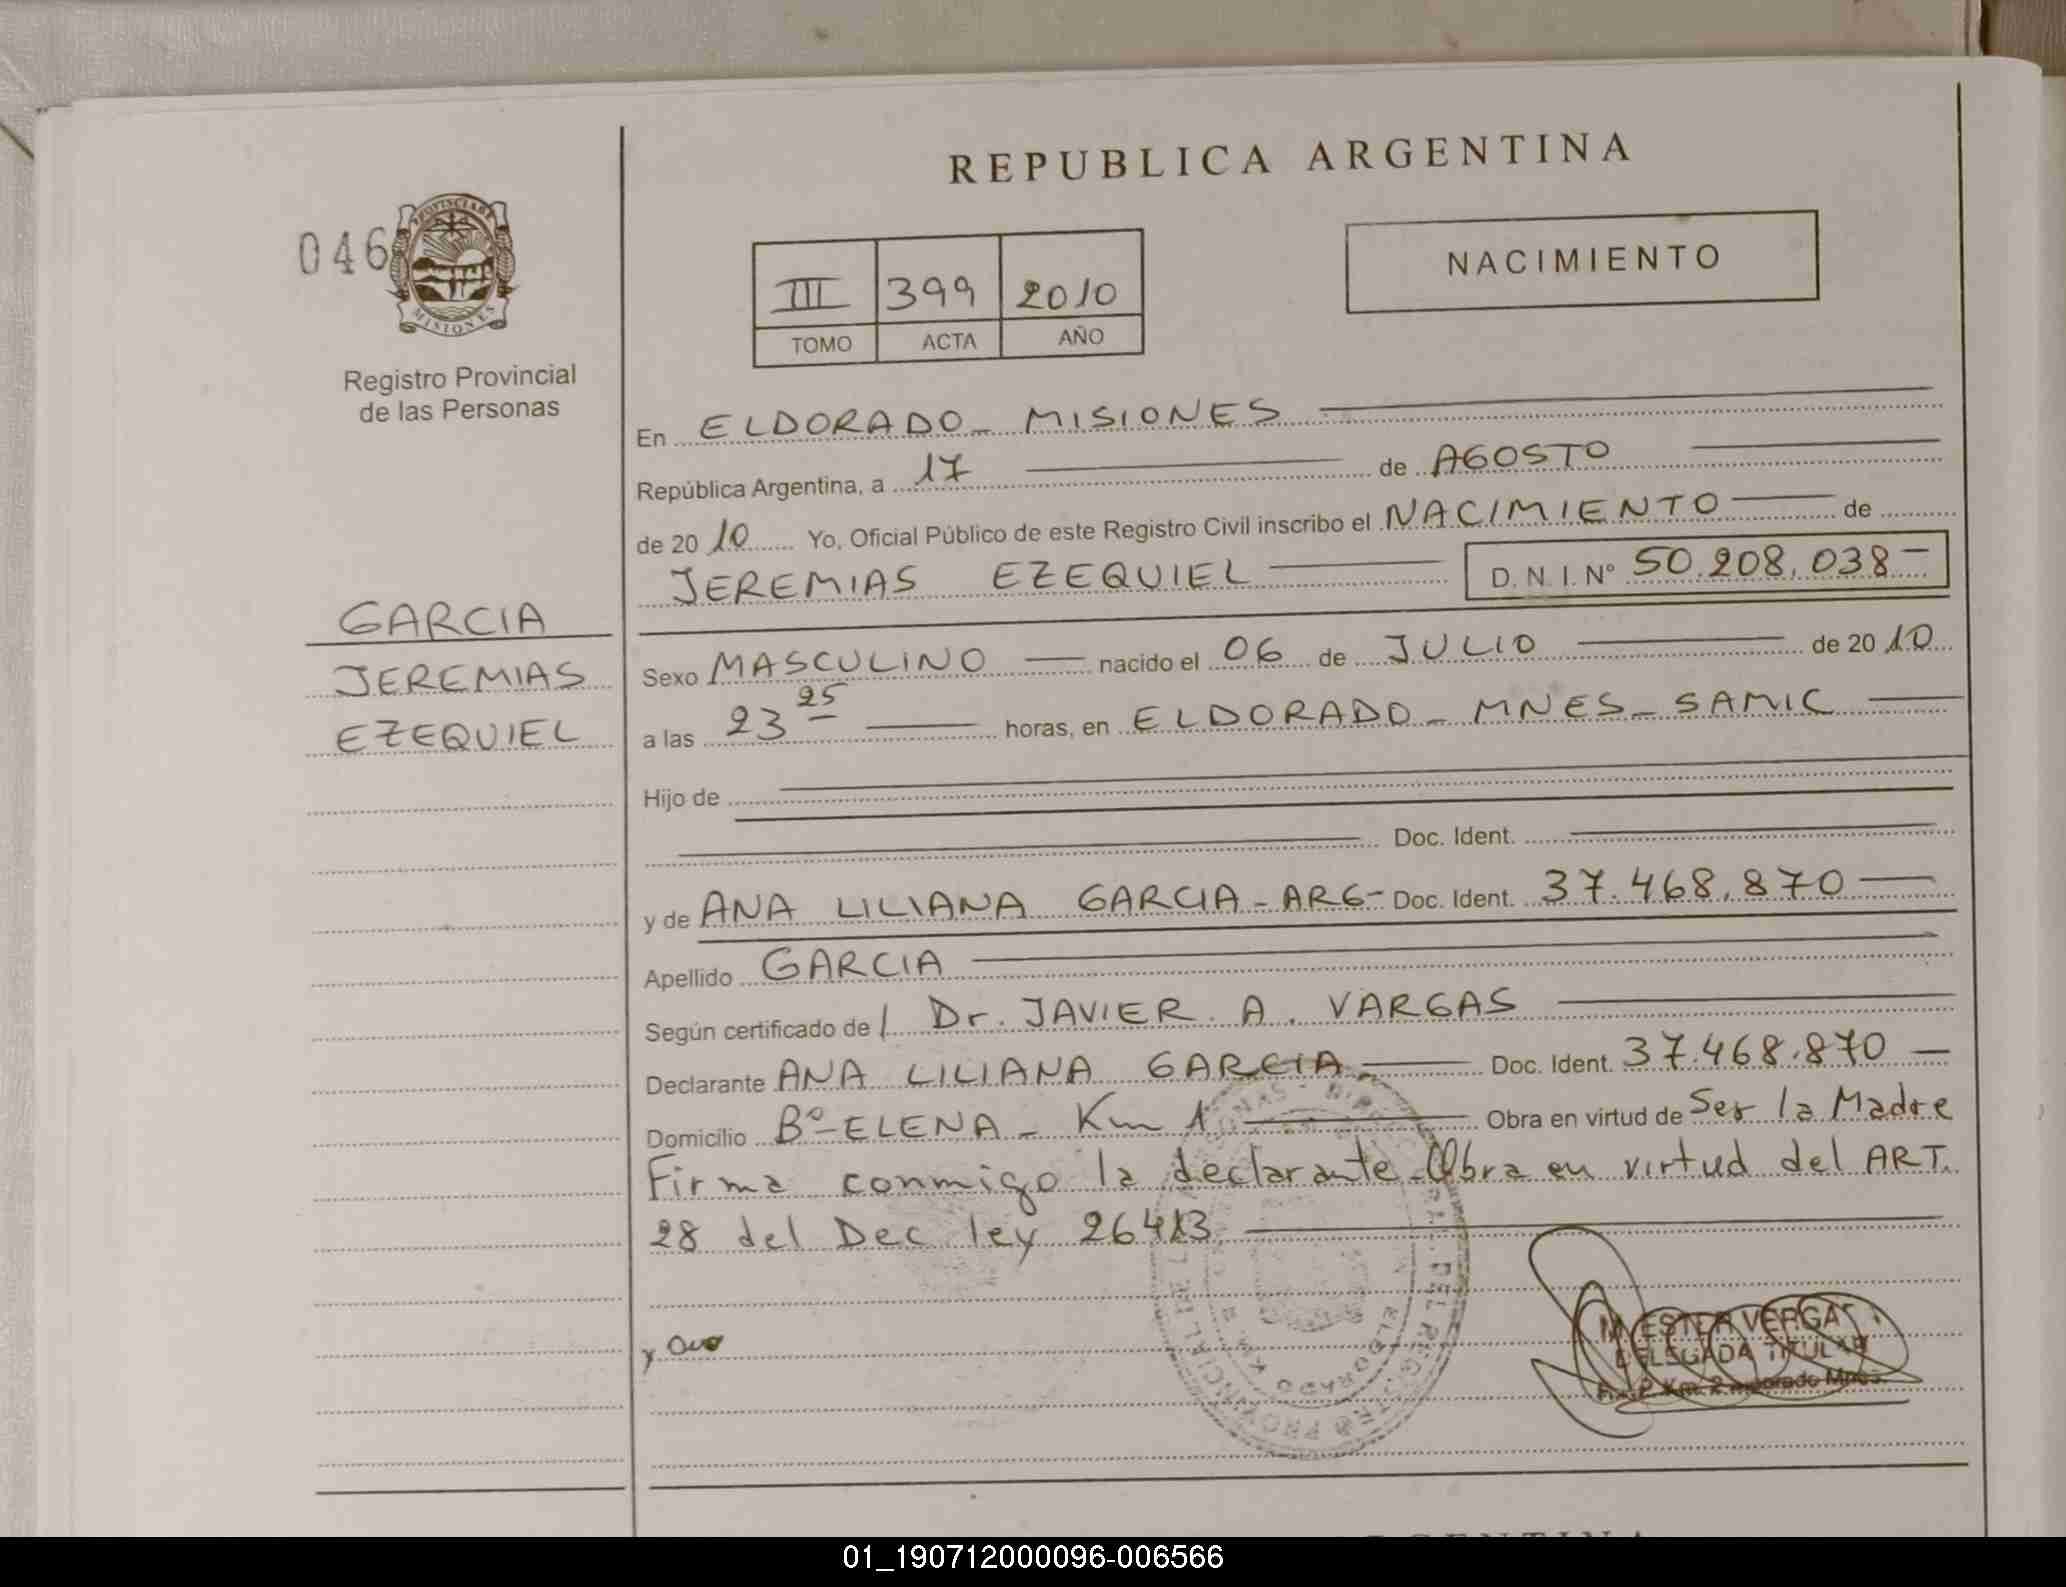 REPUBLICA ARGENTINA
046
PROVINCIA DE
MISIONES
Registro Provincial
de las Personas
III 399 2010
TOMO ACTA AÑO
NACIMIENTO
En ELDORADO - MISIONES
República Argentina, a 17 de AGOSTO
de 2010 Yo, Oficial Público de este Registro Civil inscribo el NACIMIENTO de
JEREMIAS EZEQUIEL D.N.I.Nº 50.208.038-
GARCIA
JEREMIAS
EZEQUIEL
Sexo MASCULINO nacido el 06 de JULIO de 2010
a las 23 25 horas, en ELDORADO - MNES - SAMIC
Hijo de
Doc. Ident.
y de ANA LILIANA GARCIA - ARG - Doc. Ident. 37.468.870
Apellido GARCIA
Según certificado de / Dr. JAVIER A. VARGAS
Declarante ANA LILIANA GARCIA Doc. Ident. 37.468.870
Domicilio Bº ELENA - Km 1 Obra en virtud de Ser la Madre
Firma conmigo la declarante. Obra en virtud del ART.
28 del Dec ley 26413
M. ESTER VERGA
DELEGADA TITULAR
01_190712000096-006566